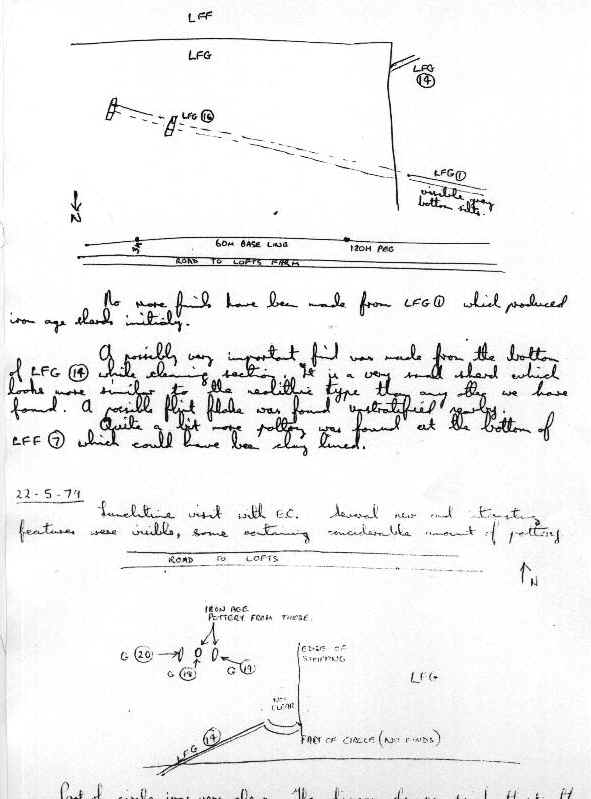 LFF
LFG
LFG ⑭
LFG ⑯
LFG ①
visible grey
bottom silts.
N
60M BASE LINE
120M PEG
ROAD TO LOFTS FARM
No more finds have been made from LFG ① which produced
iron age sherds initially.
A possibly very important find was made from the bottom
of LFG ⑭ while cleaning section. It is a very small sherd which
looks more similar to the neolithic type than any they we have
found. A possible flint flake was found unstratified nearby.
Quite a bit more pottery was found at the bottom of
LFF ⑦ which could have been clay lined.
22-5-79
Lunchtime visit with E.C. Several new and interesting
features were visible, some containing considerable amount of pottery
ROAD TO LOFTS
N
IRON AGE
POTTERY FROM THESE.
G ⑳
G ⑱
G ⑲
EDGE OF
STRIPPING
LFG
NOT
CLEAR
LFG ⑭
PART OF CIRCLE (NO FINDS)